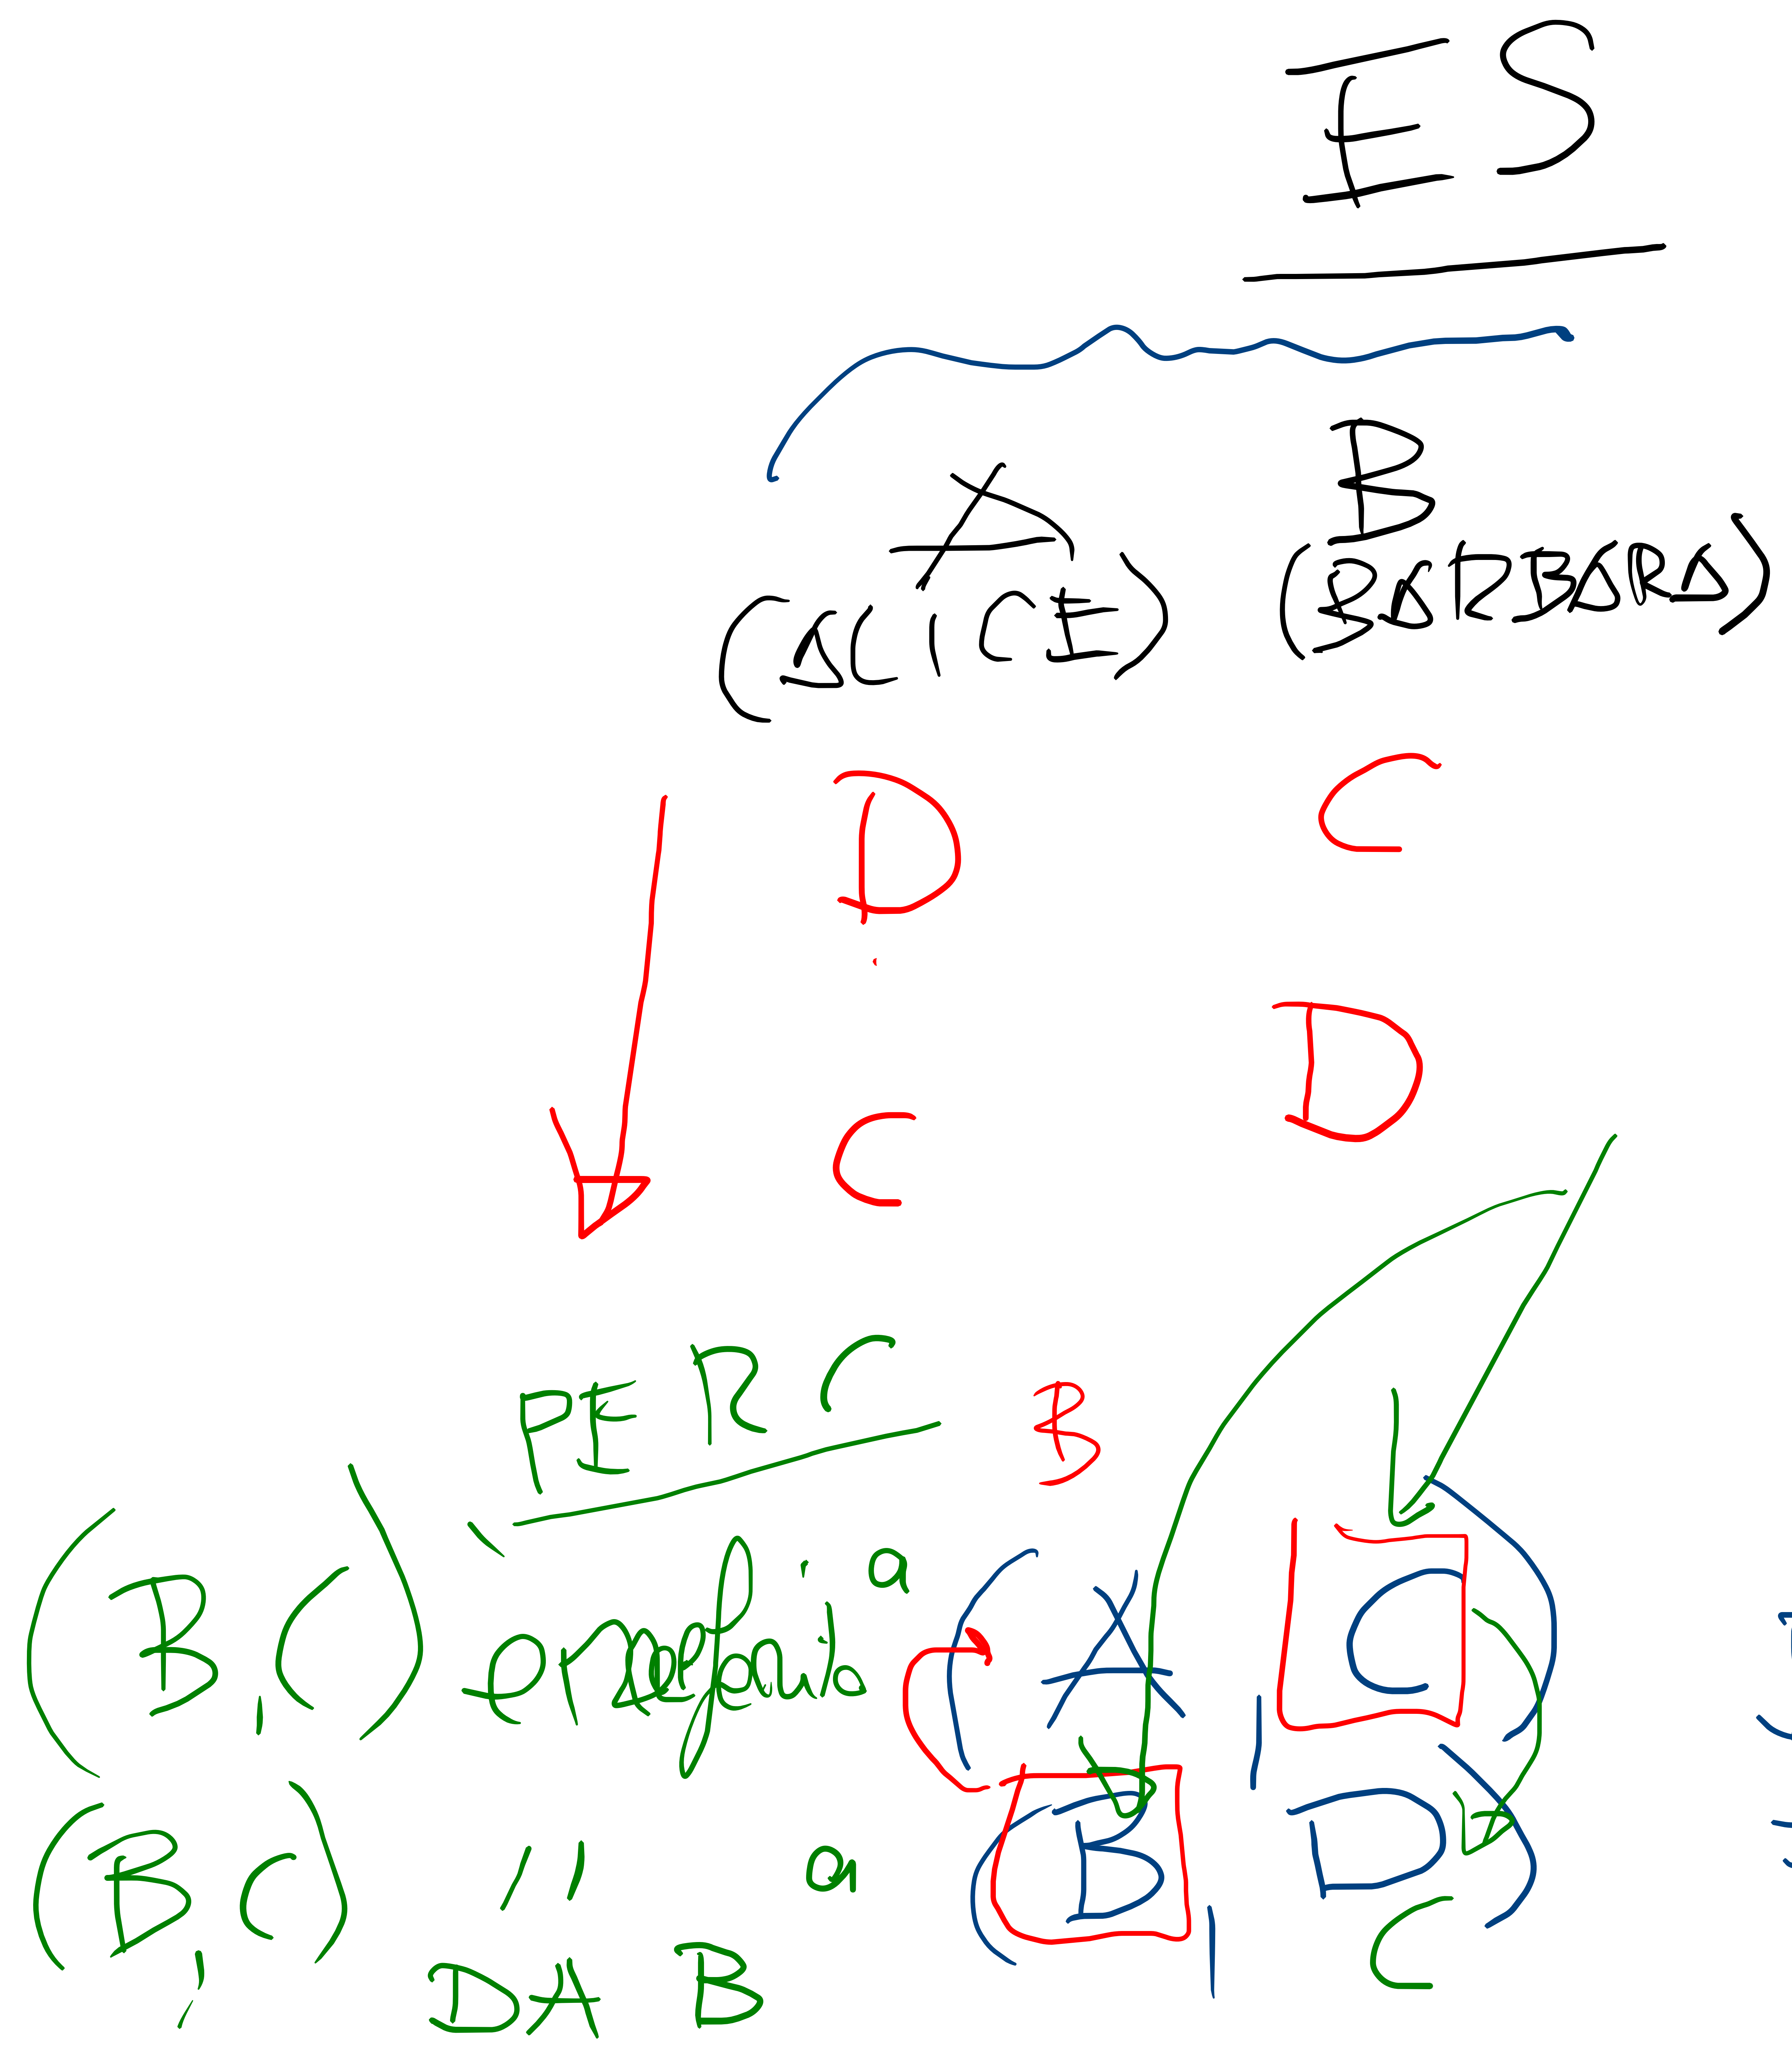 ES
A B
(ALICE) (BARBARA)
D C
D
C
PERC B
(B, C) è meglio a (A, C)
(B, C) " a (B, D)
DA B C